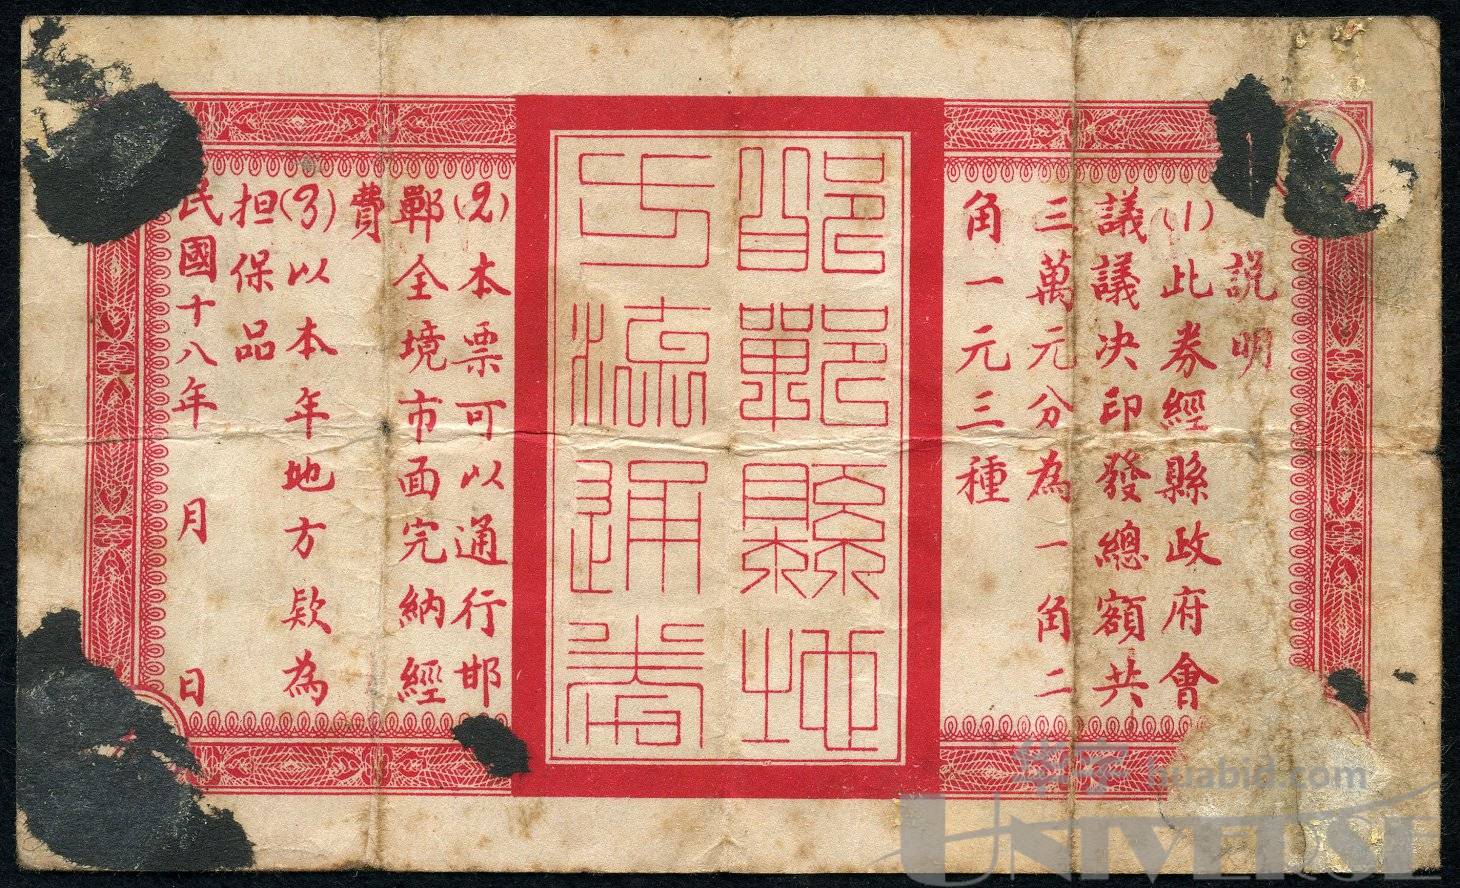 説明
(1)此券經縣政府會
議議决印發總額共
三萬元分為一角二
角一元三種
邯鄲縣地
方流通券
(2)本票可以通行邯
鄲全境市面完納經
費
(3)以本年地方欵為
担保品
民國十八年 月 日
华宇 huabid.com
UNIVERSE